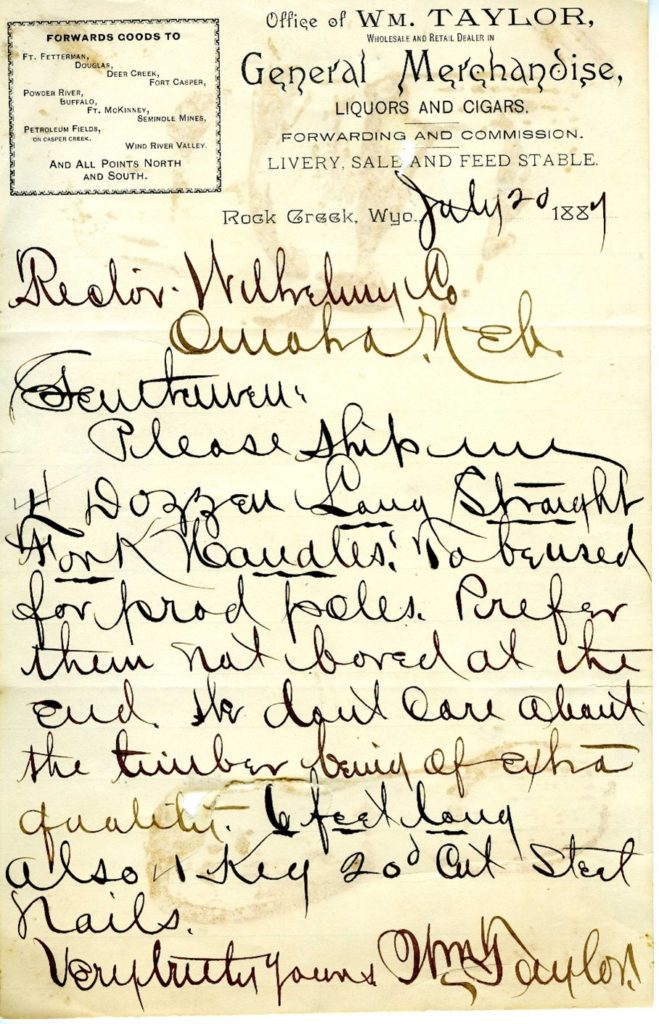 FORWARDS GOODS TO
FT. FETTERMAN,
DOUGLAS,
DEER CREEK,
FORT CASPER,
POWDER RIVER,
BUFFALO,
FT. MCKINNEY,
SEMINOLE MINES,
PETROLEUM FIELDS,
ON CASPER CREEK.
WIND RIVER VALLEY.
AND ALL POINTS NORTH
AND SOUTH.
Office of WM. TAYLOR,
WHOLESALE AND RETAIL DEALER IN
General Merchandise,
LIQUORS AND CIGARS.
FORWARDING AND COMMISSION.
LIVERY, SALE AND FEED STABLE.
Rock Creek, Wyo., July 20 1887
Rector Wilhelmy Co
Omaha Neb.
Gentlemen:
Please ship me
4 Dozzen Long Straight
Fork Handles. To be used
for prod poles. Prefer
them not bored at the
end. We dont Care about
the timber being of extra
quality. 6 feet long
also 1 Keg 20d Cut Steel
Nails.
Very truly yours Wm Taylor.